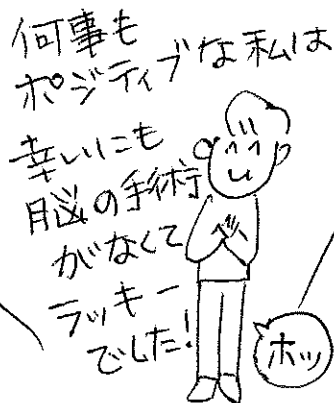 何事も
ポジティブな私は
幸いにも
脳の手術
がなくて
ラッキー
でした!
ホッ